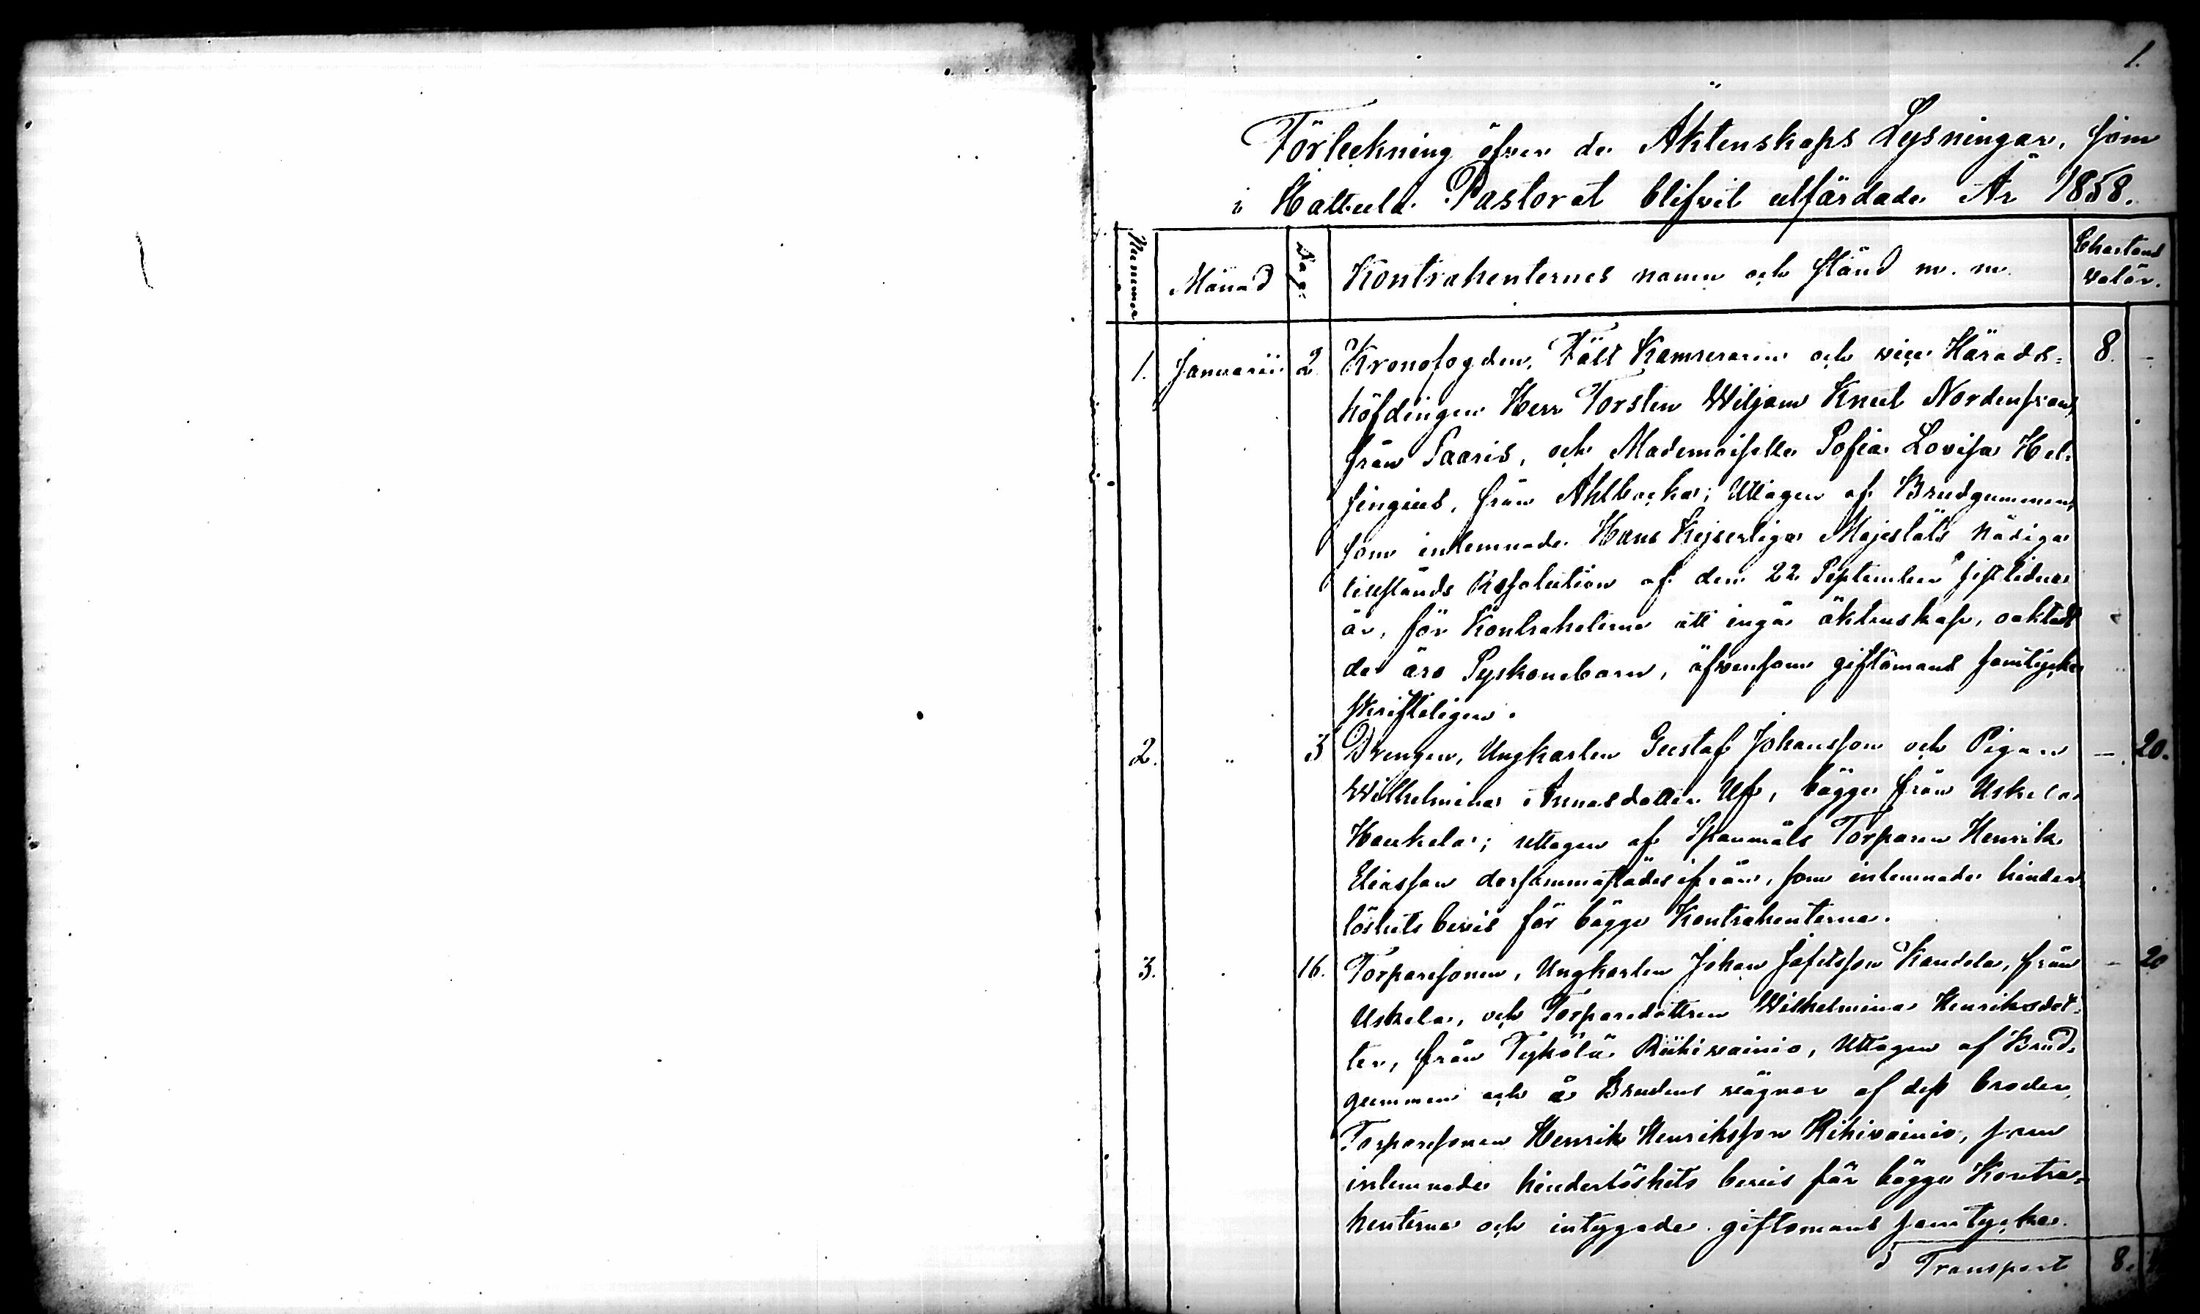 1.
Förtekning öfver de Äktenskaps Lysningar, som
i Hattula Pastorat blifvit utfärdade År 1858.
Nummer Månad Dag. Kontrahenternes namn och stånd m. m. Chartans valör.
1. Januarii 2. Kronofogden, Fält Kamreraren och vice Härads= 8. -
höfdingen Herr Torsten Wiljam Knut Nordensvan,
från Paaris, och Mademoiselle Sofia Lovisa Hel=
singius, från Ahlbacka; Uttagen af Brudgummen,
som inlemnade Hans Kejserliga Majestäts Nådiga
tillstånds Resolution af den 22 September sistledne
år, för Kontrahenterna att ingå äktenskap, oaktadt
de äro Syskonebarn, äfvensom giftomans samtycke
skrifteligen.
2. " 3 Drengen, Ungkarlen Gustaf Johansson och Pigan - 20.
Wilhelmina Annasdotter Uf, bägge från Uskela
Haukela; uttagen af Spanmåls Torparen Henrik
Eliasson dersammastädesifrån, som inlemnade hinder
löshets bevis för bägge Kontrahenterna.
3. 16. Torparesonen, Ungkarlen Johan Jafetsson Kandela, från - 20
Uskela, och Torparedottren Wilhelmina Henriksdot=
ter, från Tyhölä Riihivainio, Uttagen af Brud=
gummen och å Brudens vägnar af dess broder,
Torparesonen Henrik Henriksson Rihivainio, som
inlemnade hinderlöshets bevis för bägge Kontra=
henterna och intygade giftomans samtycke.
Transport 8.